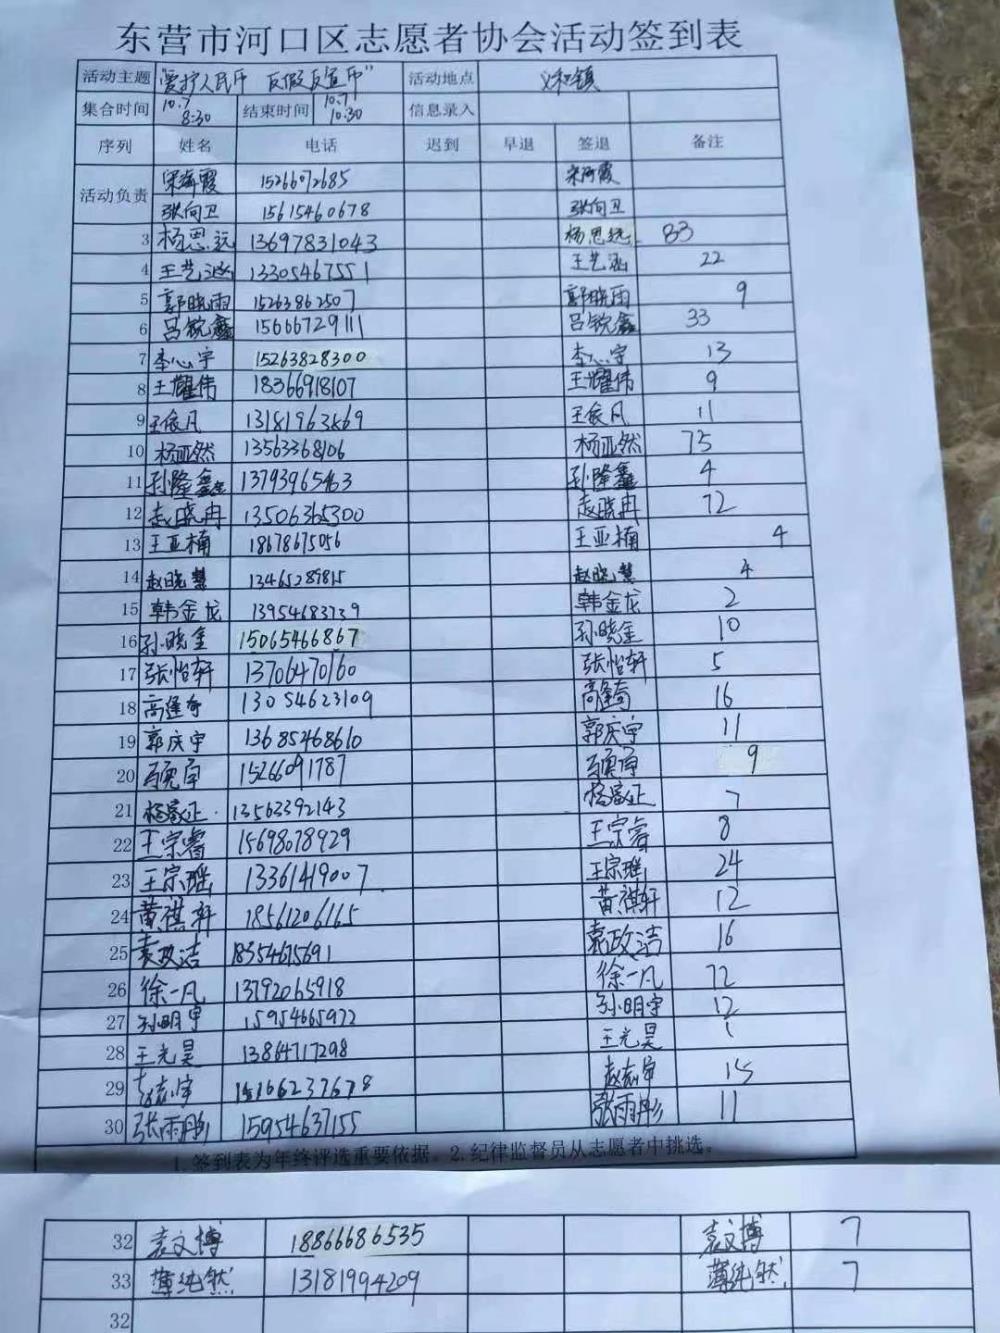 东营市河口区志愿者协会活动签到表
活动主题 "爱护人民币 反假反宣币" 活动地点 义和镇
集合时间 10.7 8:30 结束时间 10.7 10:30 信息录入
序列 姓名 电话 迟到 早退 签退 备注
活动负责 宋海霞 15266072685 宋海霞
张向卫 15615460678 张向卫
3 杨思远 13697831043 杨思远 33
4 王艺涵 13305467551 王艺涵 22
5 郭晓雨 15263862507 郭晓雨 9
6 吕锐鑫 15666729111 吕锐鑫 33
7 李心宇 15263828300 李心宇 13
8 王耀伟 18366918107 王耀伟 9
9 王俊凡 13181963569 王俊凡 11
10 杨亚然 13563368106 杨亚然 75
11 孙隆鑫 13793965463 孙隆鑫 4
12 赵晓冉 13506365300 赵晓冉 72
13 王亚楠 18678675056 王亚楠 4
14 赵晓慧 13465289815 赵晓慧 4
15 韩金龙 13954683739 韩金龙 2
16 孙晓金 15065466867 孙晓金 10
17 张怡轩 13706470160 张怡轩 5
18 13054623109 16
19 郭庆宇 13685468610 郭庆宇 11
20 15266091787 9
21 13563392143 7
22 王宗睿 15698078929 王宗睿 8
23 王宗瑶 13361419007 王宗瑶 24
24 黄祺轩 18561206165 黄祺轩 12
25 袁政洁 18354675691 袁政洁 16
26 徐一凡 13792065918 徐一凡 72
27 孙明宇 15954665972 孙明宇 12
28 王光昊 13864717298 王光昊 1
29 赵志宇 15166237678 赵志宇 15
30 张雨彤 15954637155 张雨彤 11
1.签到表为年终评选重要依据。2.纪律监督员从志愿者中挑选。
32 袁文博 18866686535 袁文博 7
33 薄纯然 13181994209 薄纯然 7
32